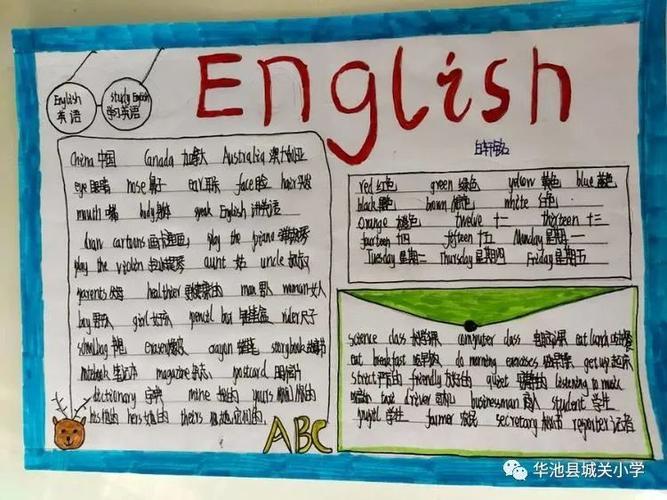 English
English
英语
Study English
学习英语
China 中国 Canada 加拿大 Australia 澳大利亚
eye 眼睛 nose 鼻子 ear 耳朵 face 脸 hair 头发
mouth 嘴 body 身体 speak English 讲英语
draw cartoons play the piano
play the violin aunt 姑 uncle 叔叔
parents healthier man 男人 woman 女人
boy 男孩 girl 女孩 pencil box ruler 尺子
eraser crayon storybook
notebook 笔记本 magazine 杂志 postcard 明信片
dictionary 字典 mine 我的 yours
his 他的 hers 她的 theirs
ABC
red 红色 green 绿色 yellow 黄色 blue 蓝色
black brown white
orange 橙色 twelve 十一 thirteen 十三
fourteen 十四 fifteen 十五 Monday 星期一
Tuesday 星期二 Thursday 星期四 Friday 星期五
science class 科学课 computer class 电脑课 eat lunch
eat breakfast 吃早饭 do morning exercises get up 起床
strict 严厉的 friendly 友好的 quiet listening to music
taxi driver businessman 商人 student 学生
pupil 学生 farmer 农民 secretary 秘书 reporter 记者
华池县城关小学